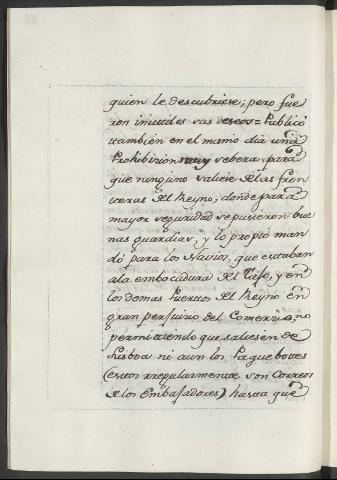 quien le descubriese; pero fue
ron inutiles sus deseos = Publicó
ttambien en el mismo dia una
Prohibicion muy sebera, para
que ninguno saliese de las fron
tteras del Reyno; donde para
mayor seguridad se pusieron bue
nas guardias, y lo propio man
dó para los Navios, que estaban
a la embocadura del Tajo, y en
los demas Puertos del Reyno en
gran perjuicio del Comercio, no
permitiendo que saliesen de
Lisboa ni aun los Paquebottes
(estos rregularmente son Correos
de los Embajadores) hasta que